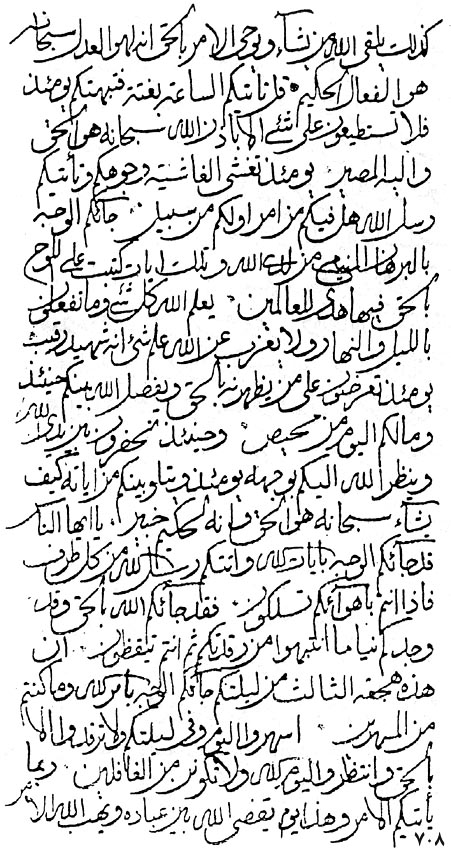 كذلك يلقى الله من يشآء ويوحى الامر بالحق انه لهو العدل سبحانه
هو الفعال الحكيم فلتأتينكم الساعة بغتة فتبهتكم يومئذ
فلا تستطيعون على شئ الا باذن الله سبحانه هو الحق
واليه المصير يومئذ تغشى الغاشية وجوهكم وتأتيكم
رسل الله هل فيكم من امر او لكم من سبيل جآئكم الوجبه
بالبرهان من لدى الله وتلك ايات كتبت على اللوح
بالحق فيها هدى للعالمين يعلم الله كل شئ وما تفعلون
بالليل والنهار ولا يعزب عن الله على شئ انه شهيد رقيب
يومئذ تعرضون على من يظهر نه بالحق ويفصل الله بينكم حينئذ
وما لكم اليوم من محيص وحينئذ تحضرون بين يدى الله
وينظر الله اليكم بوجهه يومئذ من اياته كيف
يشآء سبحانه هو الحق وانه لحكيم خبير يا ايها الناس
قد جآئكم الوجبه بايات الله واتتكم رسل الله من كل طرف
فاذا انتم باهوآئكم تسلكون فقد جآئكم الله بالحق وقد
وجدكم نياما انتبهوا من رقدتكم ثم انتم تيقظون ان
هذه هجعة الثالث من ليلتكم جآئكم الوجبه بامر الله وما كنتم
من المسهرين اسهروا اليوم وفى ليلتكم ولا ترقدوا الا
بالحق وانتظروا اليوم لله ولا تكونن من الغافلين ربما
يأتيكم الامر وهذا يوم يقضى الله بين عباده ويهب الله الامر
٧٠٨